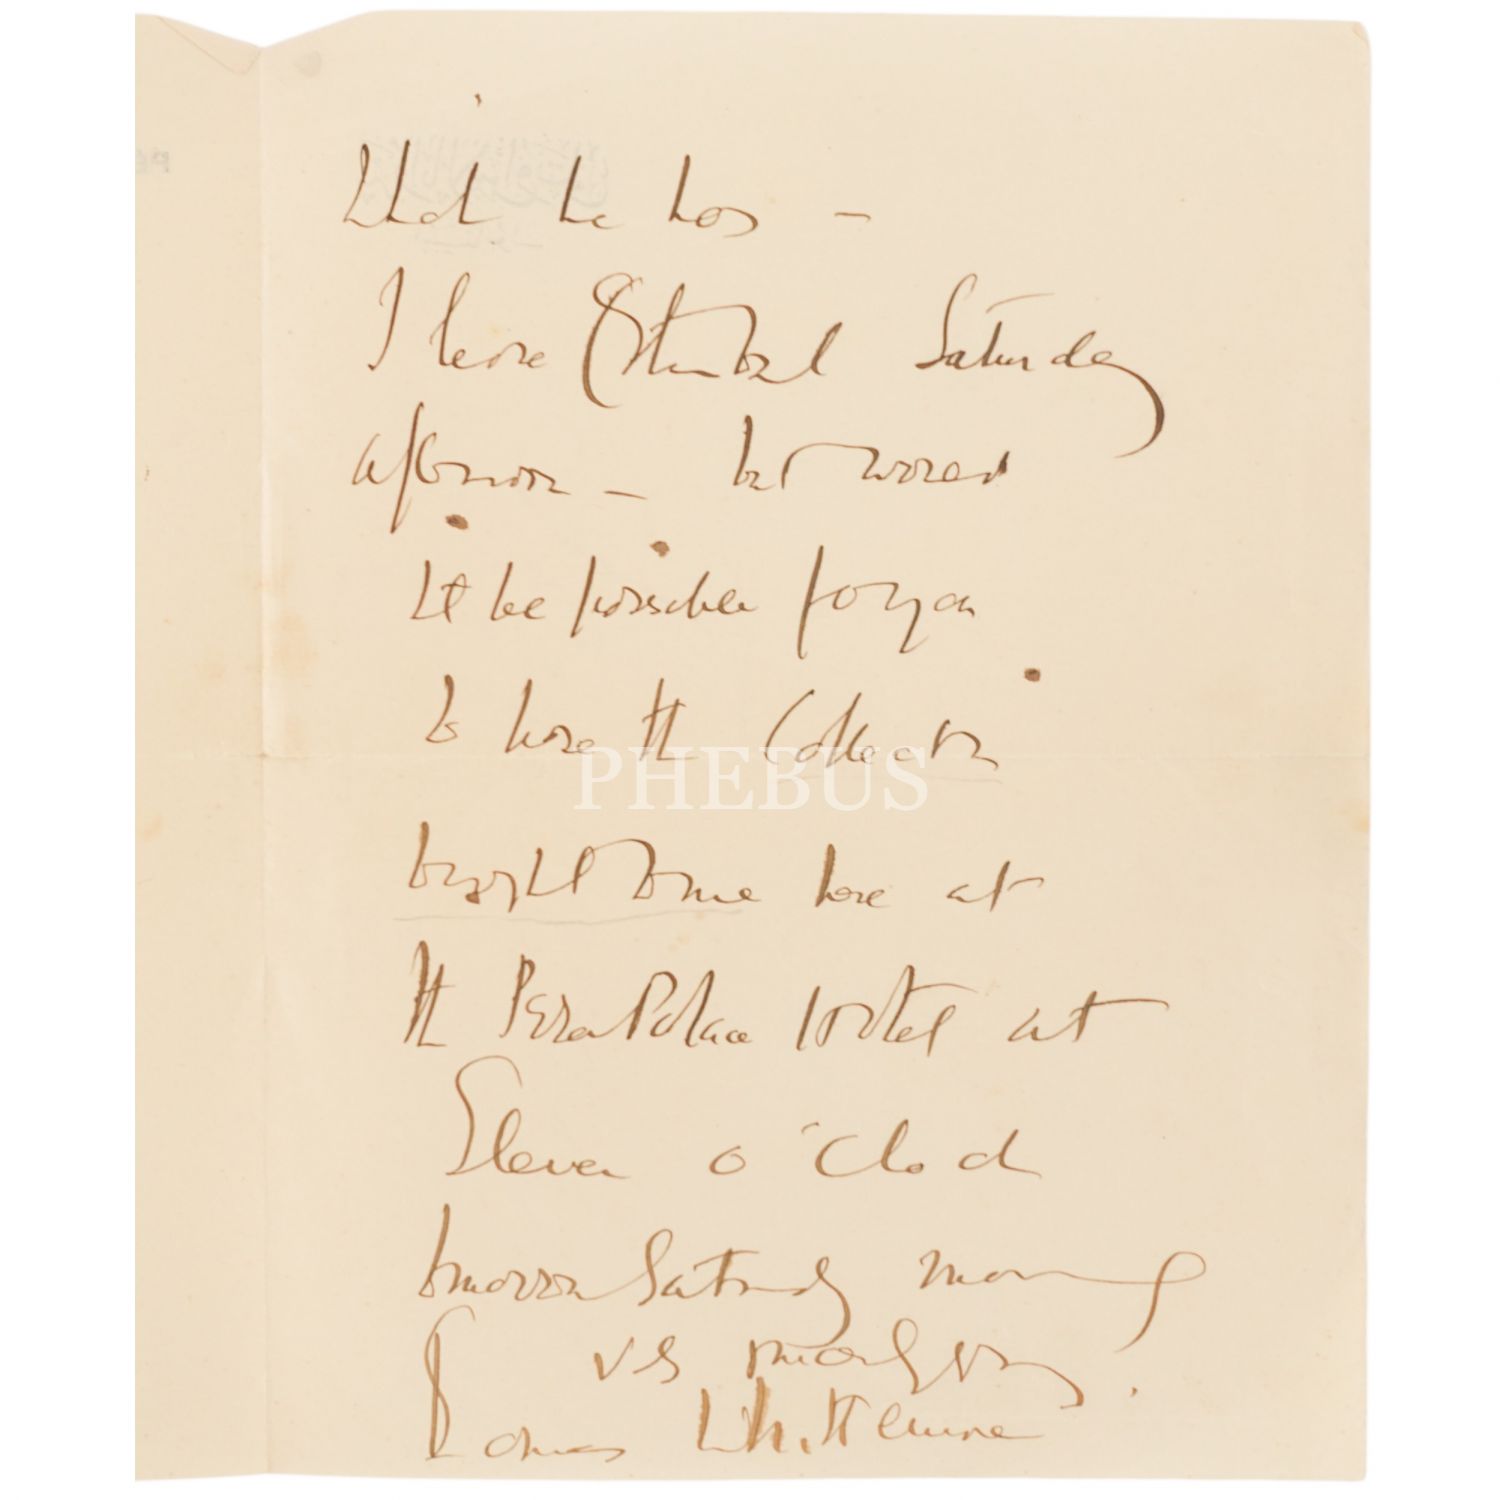 which he has –
I leave Istanbul Saturday
afternoon – but would
it be possible for you
to have the Collection
PHEBUS
brought to me here at
the Pera Palace Hotel at
Eleven o'Clock
tomorrow Saturday morning
Thomas Whittemore